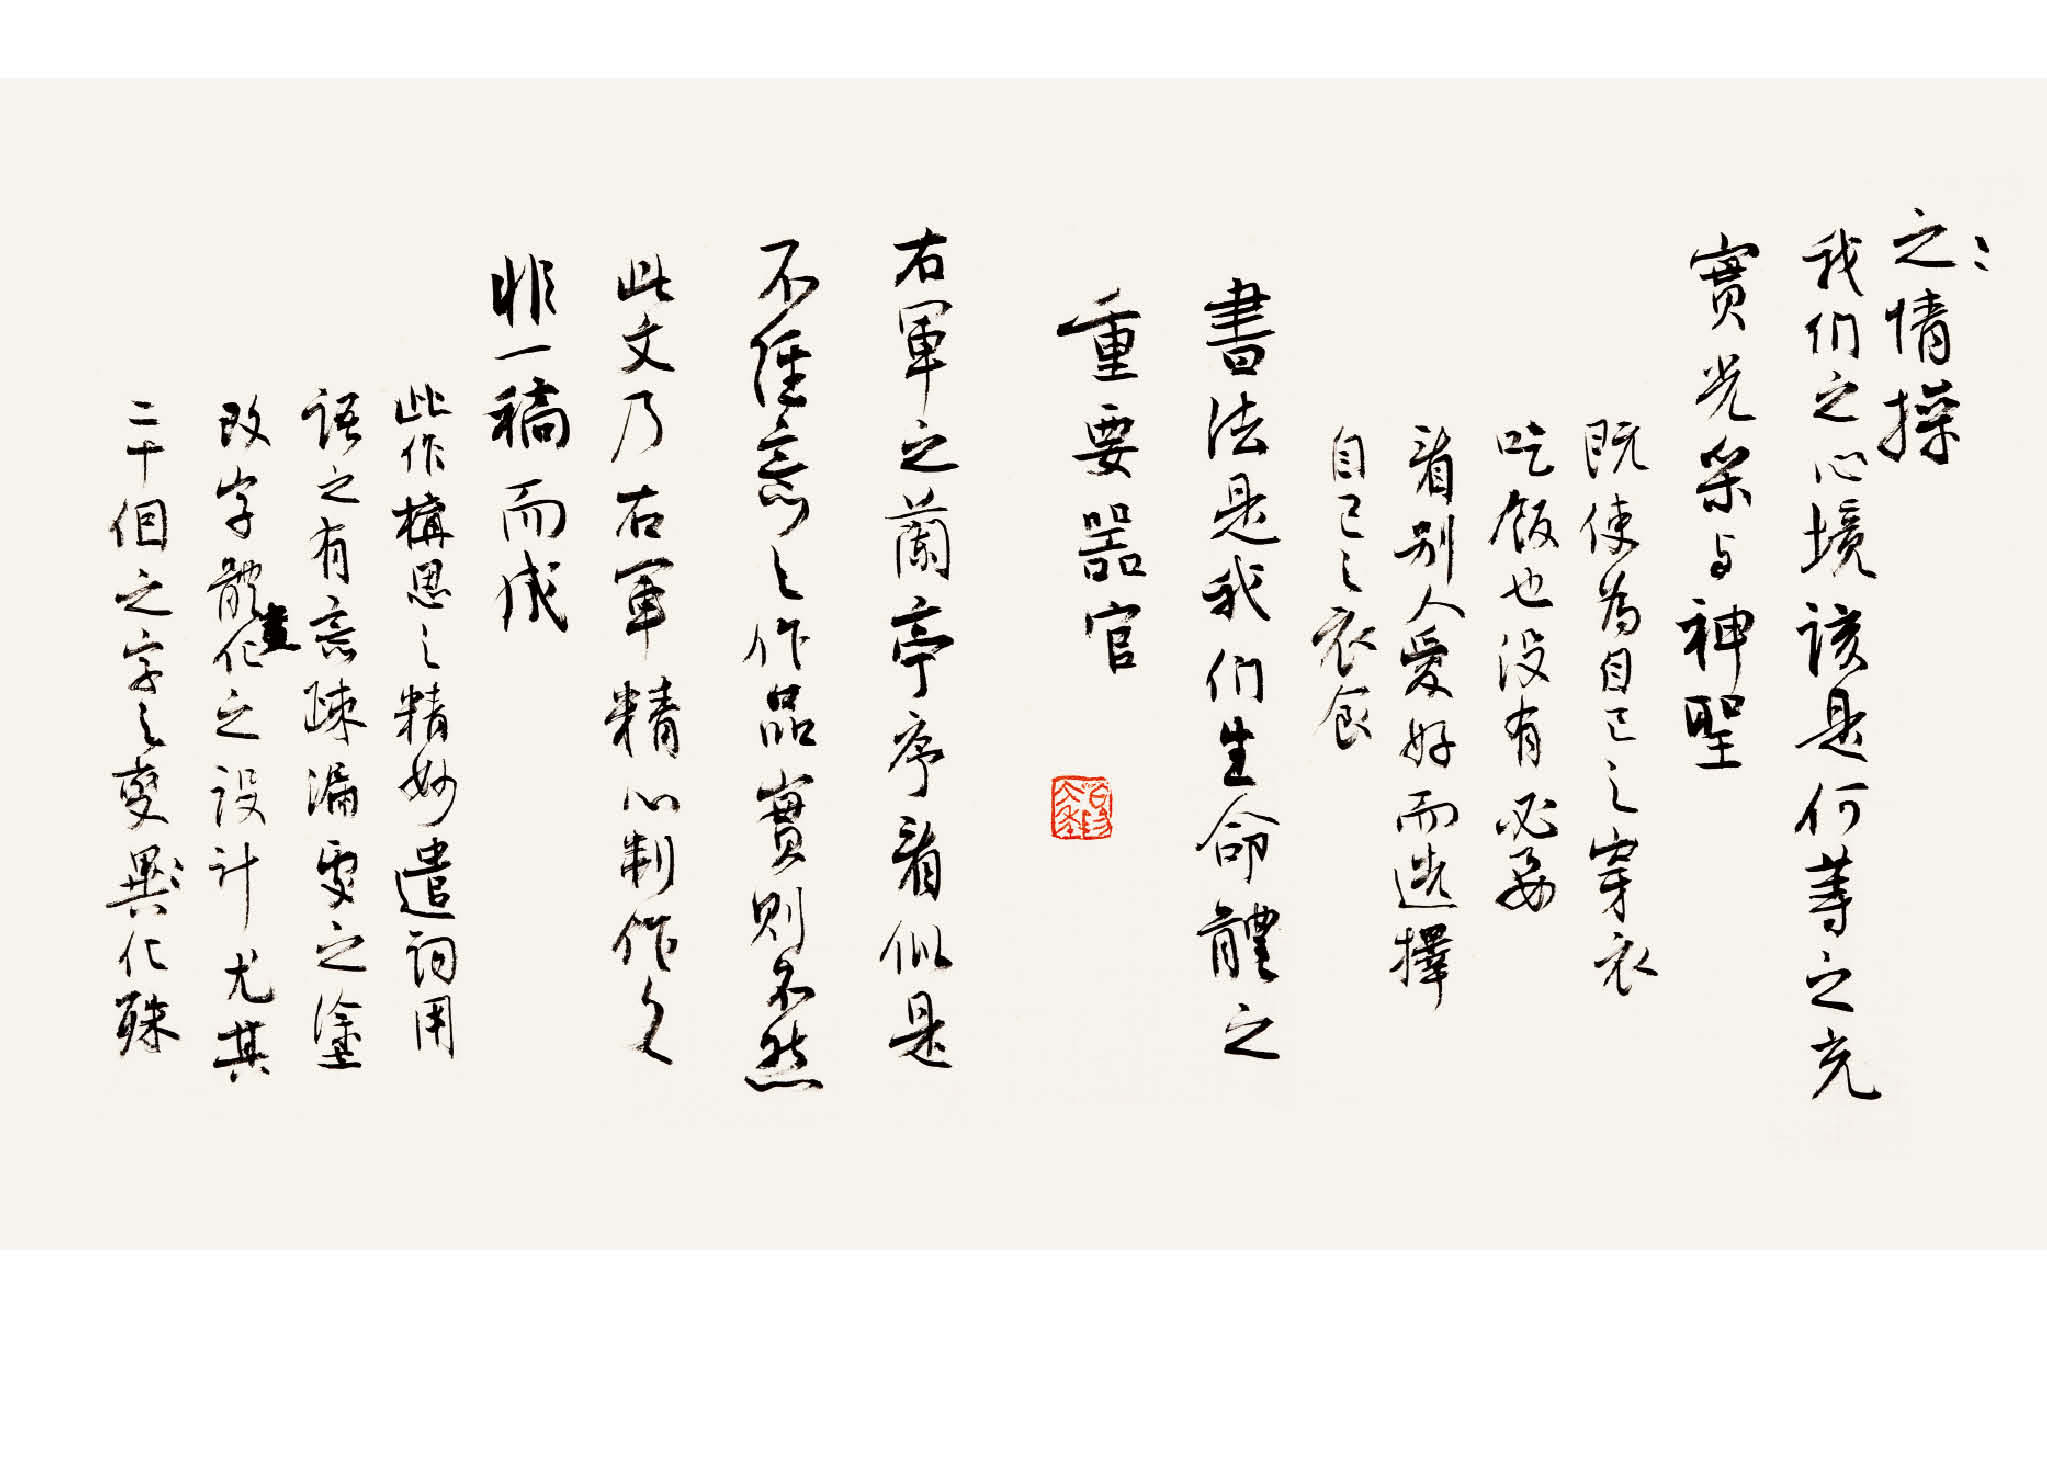 之情操
我们之心境该是何等之充
實光采与神聖
既使為自己之穿衣
吃飯也没有必要
看别人愛好而选擇
自己之衣食
書法是我们生命體之
重要器官
右軍之蘭亭序看似是
不經意之作品實则不然
此文乃右軍精心制作之
非一稿而成
此作構思之精妙遣词用
语之有意疎漏處之塗
改字體化之设计尤其
二十個之字之變異化殊